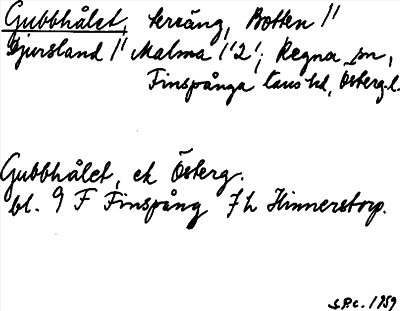 Gubbhålet, terräng, Botten 1'
Djursland 1' Malma 1'2'; Regna sn,
Finspånga läns hd, Österg.l.
Gubbhålet, ek Österg.
bl. 9 F Finspång 7 h Hinnerstorp.
S.P.C. 1959